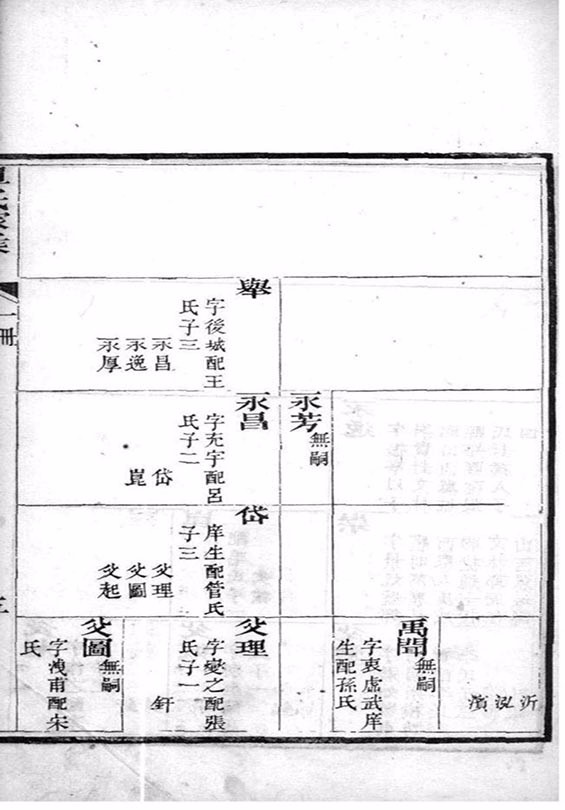 舉
字後城配王
氏子三
永昌
永逸
永厚
永芳
無嗣
永昌
字充宇配呂
氏子二
岱
崑
岱
庠生配管氏
子三
爻理
爻圖
爻起
沂
泓
濱
禹聞
無嗣
字衷虛武庠
生配孫氏
爻理
字變之配張
氏子一
釬
爻圖
無嗣
字洩甫配宋
氏